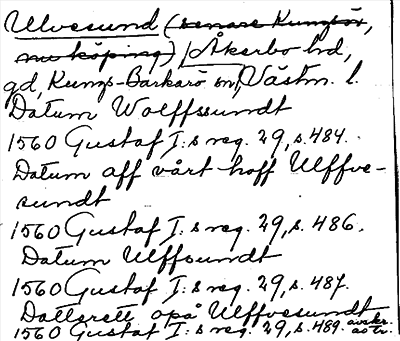 Ulvesund (senare Kungsör,
nu köping) Åkerbo hd,
gd, Kungs-Barkarö sn, Västm. l.
Datum Wolffssundt
1560 Gustaf I:s reg. 29, s. 484.
Datum aff vårt hoff Ulffve-
sundt
1560 Gustaf I:s reg. 29, s. 486.
Datum Ulffsundt
1560 Gustaf I:s reg. 29, s. 487.
Datterett opå Ulffvesundt
1560 Gustaf I:s reg. 29, s. 489. avskr.